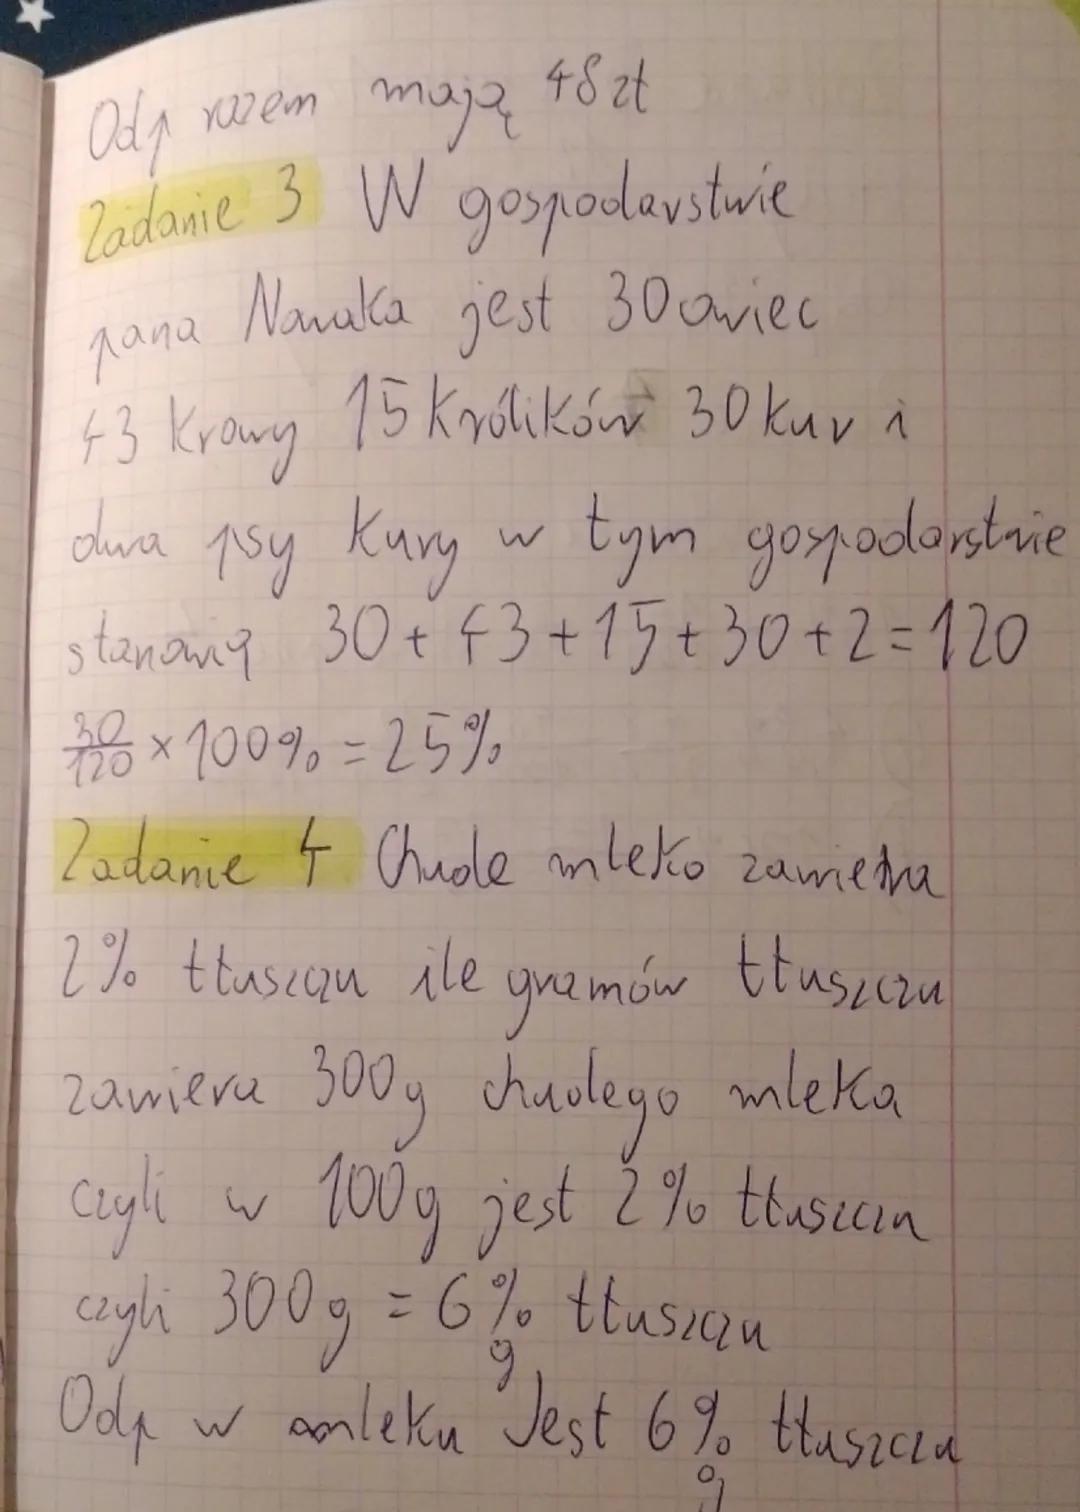 Odp razem mają 48 zł
Zadanie 3 W gospodarstwie
pana Nowaka jest 30 owiec
43 krowy 15 królików 30 kur i
dwa psy kury w tym gospodarstwie
stanowią 30 + 43 + 15 + 30 + 2 = 120
30/120 × 100% = 25%
Zadanie 4 Chude mleko zawiera
2% tłuszczu ile gramów tłuszczu
zawiera 300g chudego mleka
czyli w 100g jest 2% tłuszczu
czyli 300g = 6% tłuszczu
g
Odp w mleku Jest 6% tłuszczu
g